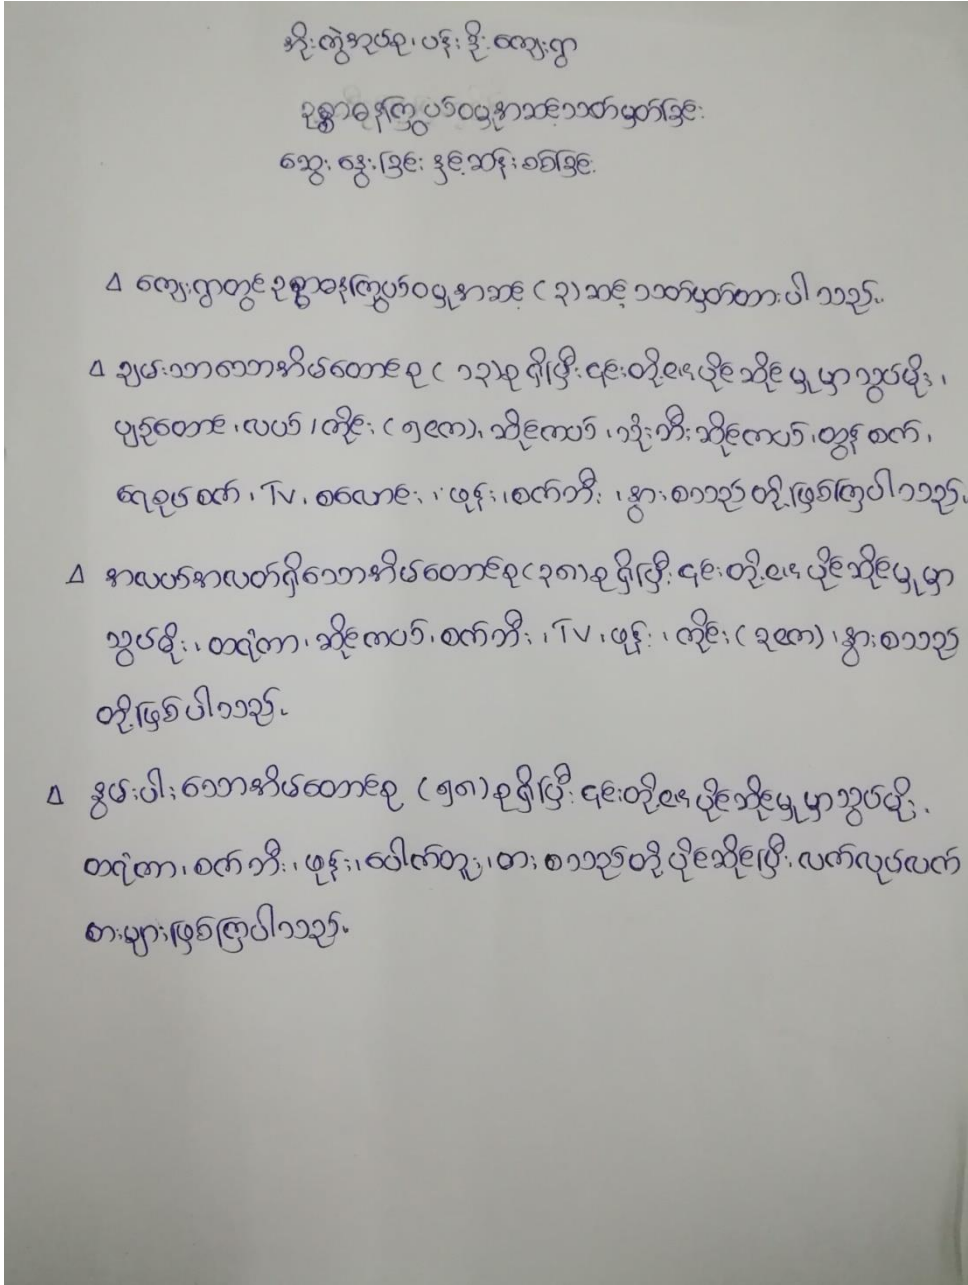 အိုးကွဲအုပ်စု၊ ပန်းဒိုးကျေးရွာ
ဥစ္စာဓနကြွယ်ဝမှုအဆင့်သတ်မှတ်ခြင်း
ဆွေးနွေးခြင်းနှင့်ဆန်းစစ်ခြင်း
Δ ကျေးရွာတွင်ဥစ္စာဓနကြွယ်ဝမှုအဆင့် (၃) ဆင့်သတ်မှတ်ထားပါသည်။
Δ ချမ်းသာသောအိမ်ထောင်စု ( ၁၃ )စု ရှိပြီး ၎င်းတို့၏ပိုင်ဆိုင်မှုမှာသွပ်မိုး၊
ပျဉ်ထောင်၊ လယ်၊ ကိုင်း (၅ဧက)၊ ဆိုင်ကယ်၊ သုံးဘီးဆိုင်ကယ်၊ ထွန်စက်၊
ရေစုပ်စက်၊ TV၊ စလောင်း၊ ဖုန်း၊ စက်ဘီး၊ နွားစသည်တို့ဖြစ်ကြပါသည်။
Δ အလယ်အလတ်ရှိသောအိမ်ထောင်စု(၃၈)စုရှိပြီး ၎င်းတို့၏ပိုင်ဆိုင်မှုမှာ
သွပ်မိုး၊ ထရံကာ၊ ဆိုင်ကယ်၊ စက်ဘီး၊ TV၊ ဖုန်း၊ ကိုင်း (၃ဧက)၊ နွားစသည်
တို့ဖြစ်ပါသည်။
Δ နွမ်းပါးသောအိမ်ထောင်စု (၅၈)စုရှိပြီး ၎င်းတို့၏ပိုင်ဆိုင်မှုမှာသွပ်မိုး၊
ထရံကာ၊ စက်ဘီး၊ ဖုန်း၊ ပေါက်တူး၊ ဓား စသည်တို့ပိုင်ဆိုင်ပြီး လက်လုပ်လက်
စားများဖြစ်ကြပါသည်။